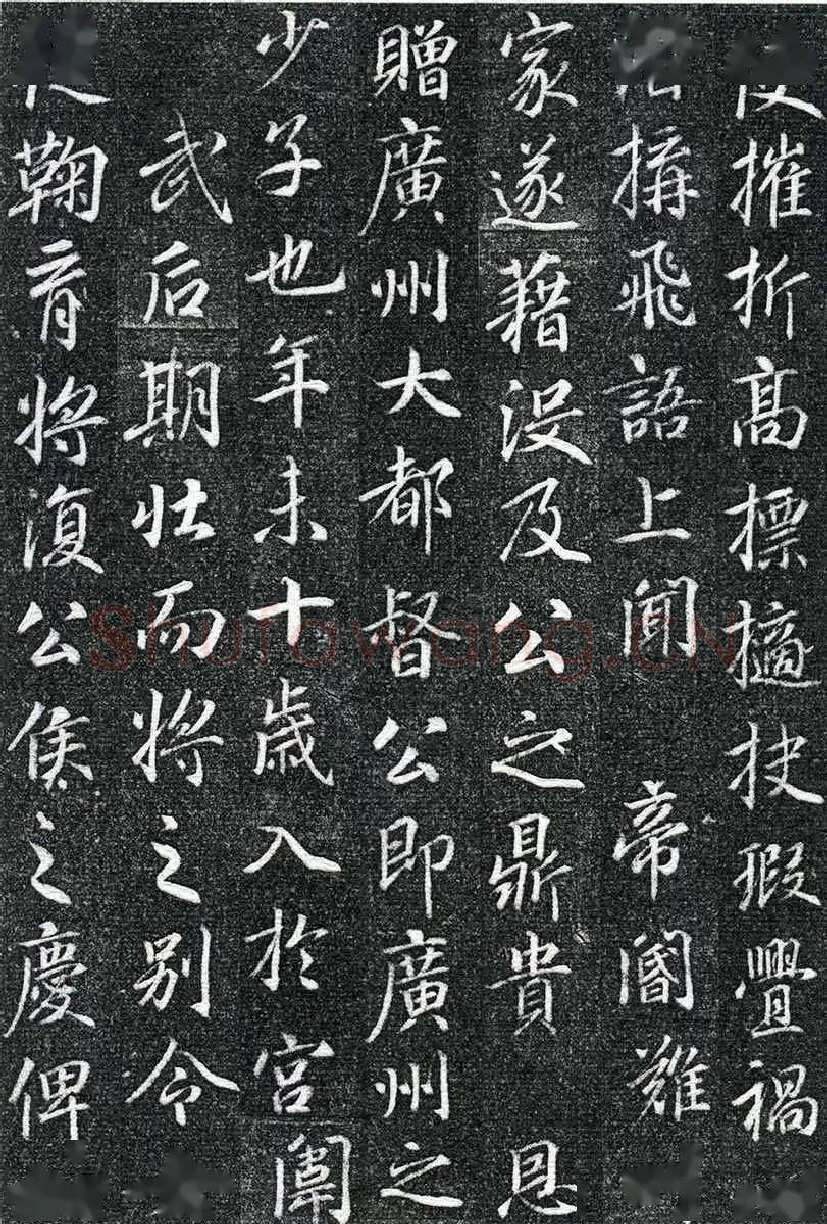 摧折高標擿抉瑕舋禍
搆飛語上聞 帝閽難
家遂藉沒及公之鼎貴 恩
贈廣州大都督公即廣州之
少子也年未十歲入於宮闈
武后期壯而將之別令
鞠育將復公侯之慶俾
ShuFaWang.CN